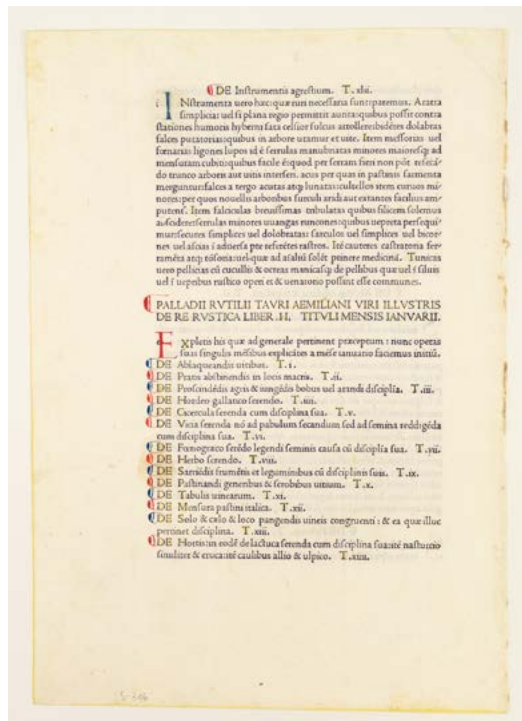 DE Instrumentis agrestium. T. xlii.
i Nstrumenta uero hæc: quæ ruri necessaria sunt: paremus. Aratra
simplicia: uel si plana regio permittit aurita: quibus possit contra
stationes humoris hyberni sata celsior sulcus attollere: bidẽtes dolabras
falces putatorias: quibus in arbore utamur et uite. Item messorias uel
fœnarias ligones lupos id ẽ serrulas manubriatas minores maioresq; ad
mensuram cubiti: quibus facile ẽ: quod per serram fieri non põt resecã-
do trunco arboris aut uitis interseri. acus per quas in pastinis sarmenta
merguntur: falces a tergo acutas atq; lunatas: cultellos item curuos mi-
nores: per quos nouellis arboribus surculi aridi aut extantes facilius am-
putent. Item falciculas breuissimas tribulatas quibus filicem solemus
abscidere: serrulas minores uuangas runcones: quibus uepreta persequi-
mur: secures simplices uel dolobratas: sarculos uel simplices uel bicor-
nes uel ascias ĩ aduersa pte referẽtes rastros. Itẽ cauteres castratoria fer-
ramẽta atq; tõsoria: uel quæ ad aĩaliũ solẽt ptinere medicinã. Tunicas
uero pelliceas cũ cucullis & ocreas manicasq; de pellibus quæ uel ĩ siluis
uel ĩ uepribus rustico operi et & uenatorio possint esse communes.
PALLADII RVTILII TAVRI AEMILIANI VIRI ILLVSTRIS
DE RE RVSTICA LIBER .II. TITVLI MENSIS IANVARII.
E Xpletis his quæ ad generale pertinent præceptum: nunc operas
suas singulis mẽsibus explicãtes a mẽse ianuario faciemus initiũ.
DE Ablaqueandis uitibus. T. i.
DE Pratis abstinendis in locis macris. T. ii.
DE Proscindẽdis agris & iungẽdis bobus uel arandi disciplĩa. T. iii.
DE Hordeo gallatico serendo. T. iiii.
DE Cicercula serenda cum disciplina sua. T. v.
DE Vicia serenda nõ ad pabulum secandum sed ad semina reddigẽda
cum disciplina sua. T. vi.
DE Fœnogræco serẽdo legendi seminis causa cũ disciplĩa sua. T. vii.
DE Herbo serendo. T. viii.
DE Sarriẽdis frumẽtis et leguminibus cũ disciplinis suis. T. ix.
DE Pastinandi generibus & scrobibus uitium. T. x.
DE Tabulis uinearum. T. xi.
DE Mensura pastini italica. T. xii.
DE Solo & cælo & loco pangendis uineis congruenti: & ea quæ illuc
pertinet disciplina. T. xiii.
DE Hortis: in eodẽ de lactuca serenda cum disciplina sua: itẽ nasturcio
similiter & eruca: itẽ caulibus allio & ulpico. T. xiiii.